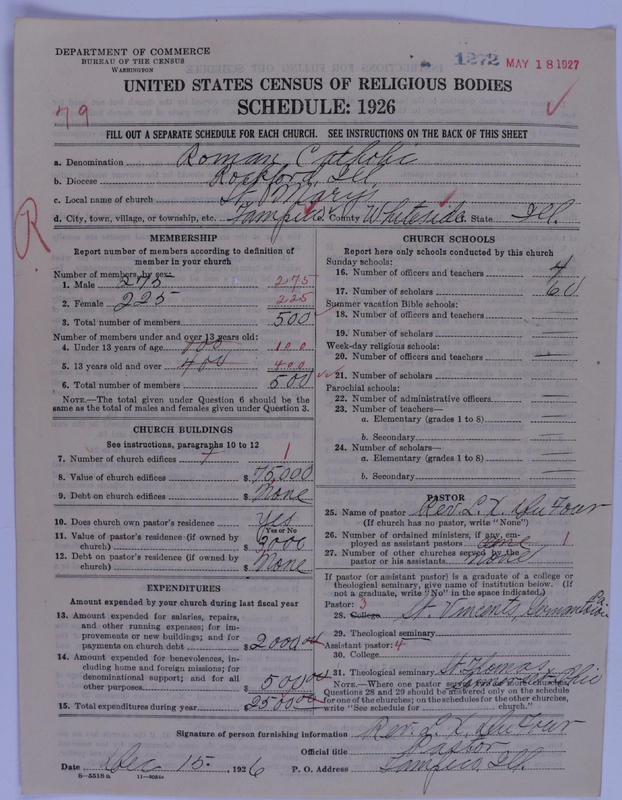 DEPARTMENT OF COMMERCE
BUREAU OF THE CENSUS
WASHINGTON
1272 MAY 18 1927
UNITED STATES CENSUS OF RELIGIOUS BODIES
SCHEDULE: 1926
79
FILL OUT A SEPARATE SCHEDULE FOR EACH CHURCH. SEE INSTRUCTIONS ON THE BACK OF THIS SHEET
a. Denomination Roman Catholic
b. Diocese Rockford, Ill
c. Local name of church St. Mary's
d. City, town, village, or township, etc. Tampico County Whiteside State Ill.
R
MEMBERSHIP
Report number of members according to definition of
member in your church
Number of members by sex:
1. Male 275 275
2. Female 225 225
3. Total number of members 500
Number of members under and over 13 years old:
4. Under 13 years of age 100 100
5. 13 years old and over 400 400
6. Total number of members 500
NOTE.—The total given under Question 6 should be the
same as the total of males and females given under Question 3.
CHURCH BUILDINGS
See instructions, paragraphs 10 to 12
7. Number of church edifices 1 1
8. Value of church edifices $ 75,000
9. Debt on church edifices $ None
10. Does church own pastor's residence Yes
(Yes or No)
11. Value of pastor's residence (if owned by
church) $ 3000
12. Debt on pastor's residence (if owned by
church) $ None
EXPENDITURES
Amount expended by your church during last fiscal year
13. Amount expended for salaries, repairs,
and other running expenses; for im-
provements or new buildings; and for
payments on church debt $ 2000 00
14. Amount expended for benevolences, in-
cluding home and foreign missions; for
denominational support; and for all
other purposes. $ 500 00
15. Total expenditures during year $ 2500 00
CHURCH SCHOOLS
Report here only schools conducted by this church
Sunday schools:
16. Number of officers and teachers 4
17. Number of scholars 60
Summer vacation Bible schools:
18. Number of officers and teachers
19. Number of scholars
Week-day religious schools:
20. Number of officers and teachers
21. Number of scholars
Parochial schools:
22. Number of administrative officers
23. Number of teachers—
a. Elementary (grades 1 to 8)
b. Secondary
24. Number of scholars—
a. Elementary (grades 1 to 8)
b. Secondary
PASTOR
25. Name of pastor Rev. L. X. Du Four
(If church has no pastor, write "None")
26. Number of ordained ministers, if any, em-
ployed as assistant pastors one 1
27. Number of other churches served by the
pastor or his assistants None
If pastor (or assistant pastor) is a graduate of a college or
theological seminary, give name of institution below. (If
not a graduate, write "No" in the space indicated.)
Pastor: 3
28. College St. Vincents,
29. Theological seminary
Assistant pastor: 4
30. College
31. Theological seminary St. Thomas
NOTE.—Where one pastor serves two or more churches,
Questions 28 and 29 should be answered only on the schedule
for one of the churches; on the schedules for the other churches,
write "See schedule for church."
Signature of person furnishing information Rev. L. X. Du Four
Official title Pastor
Date Dec 15, 1926 P. O. Address Tampico, Ill.
8—5518a 11—